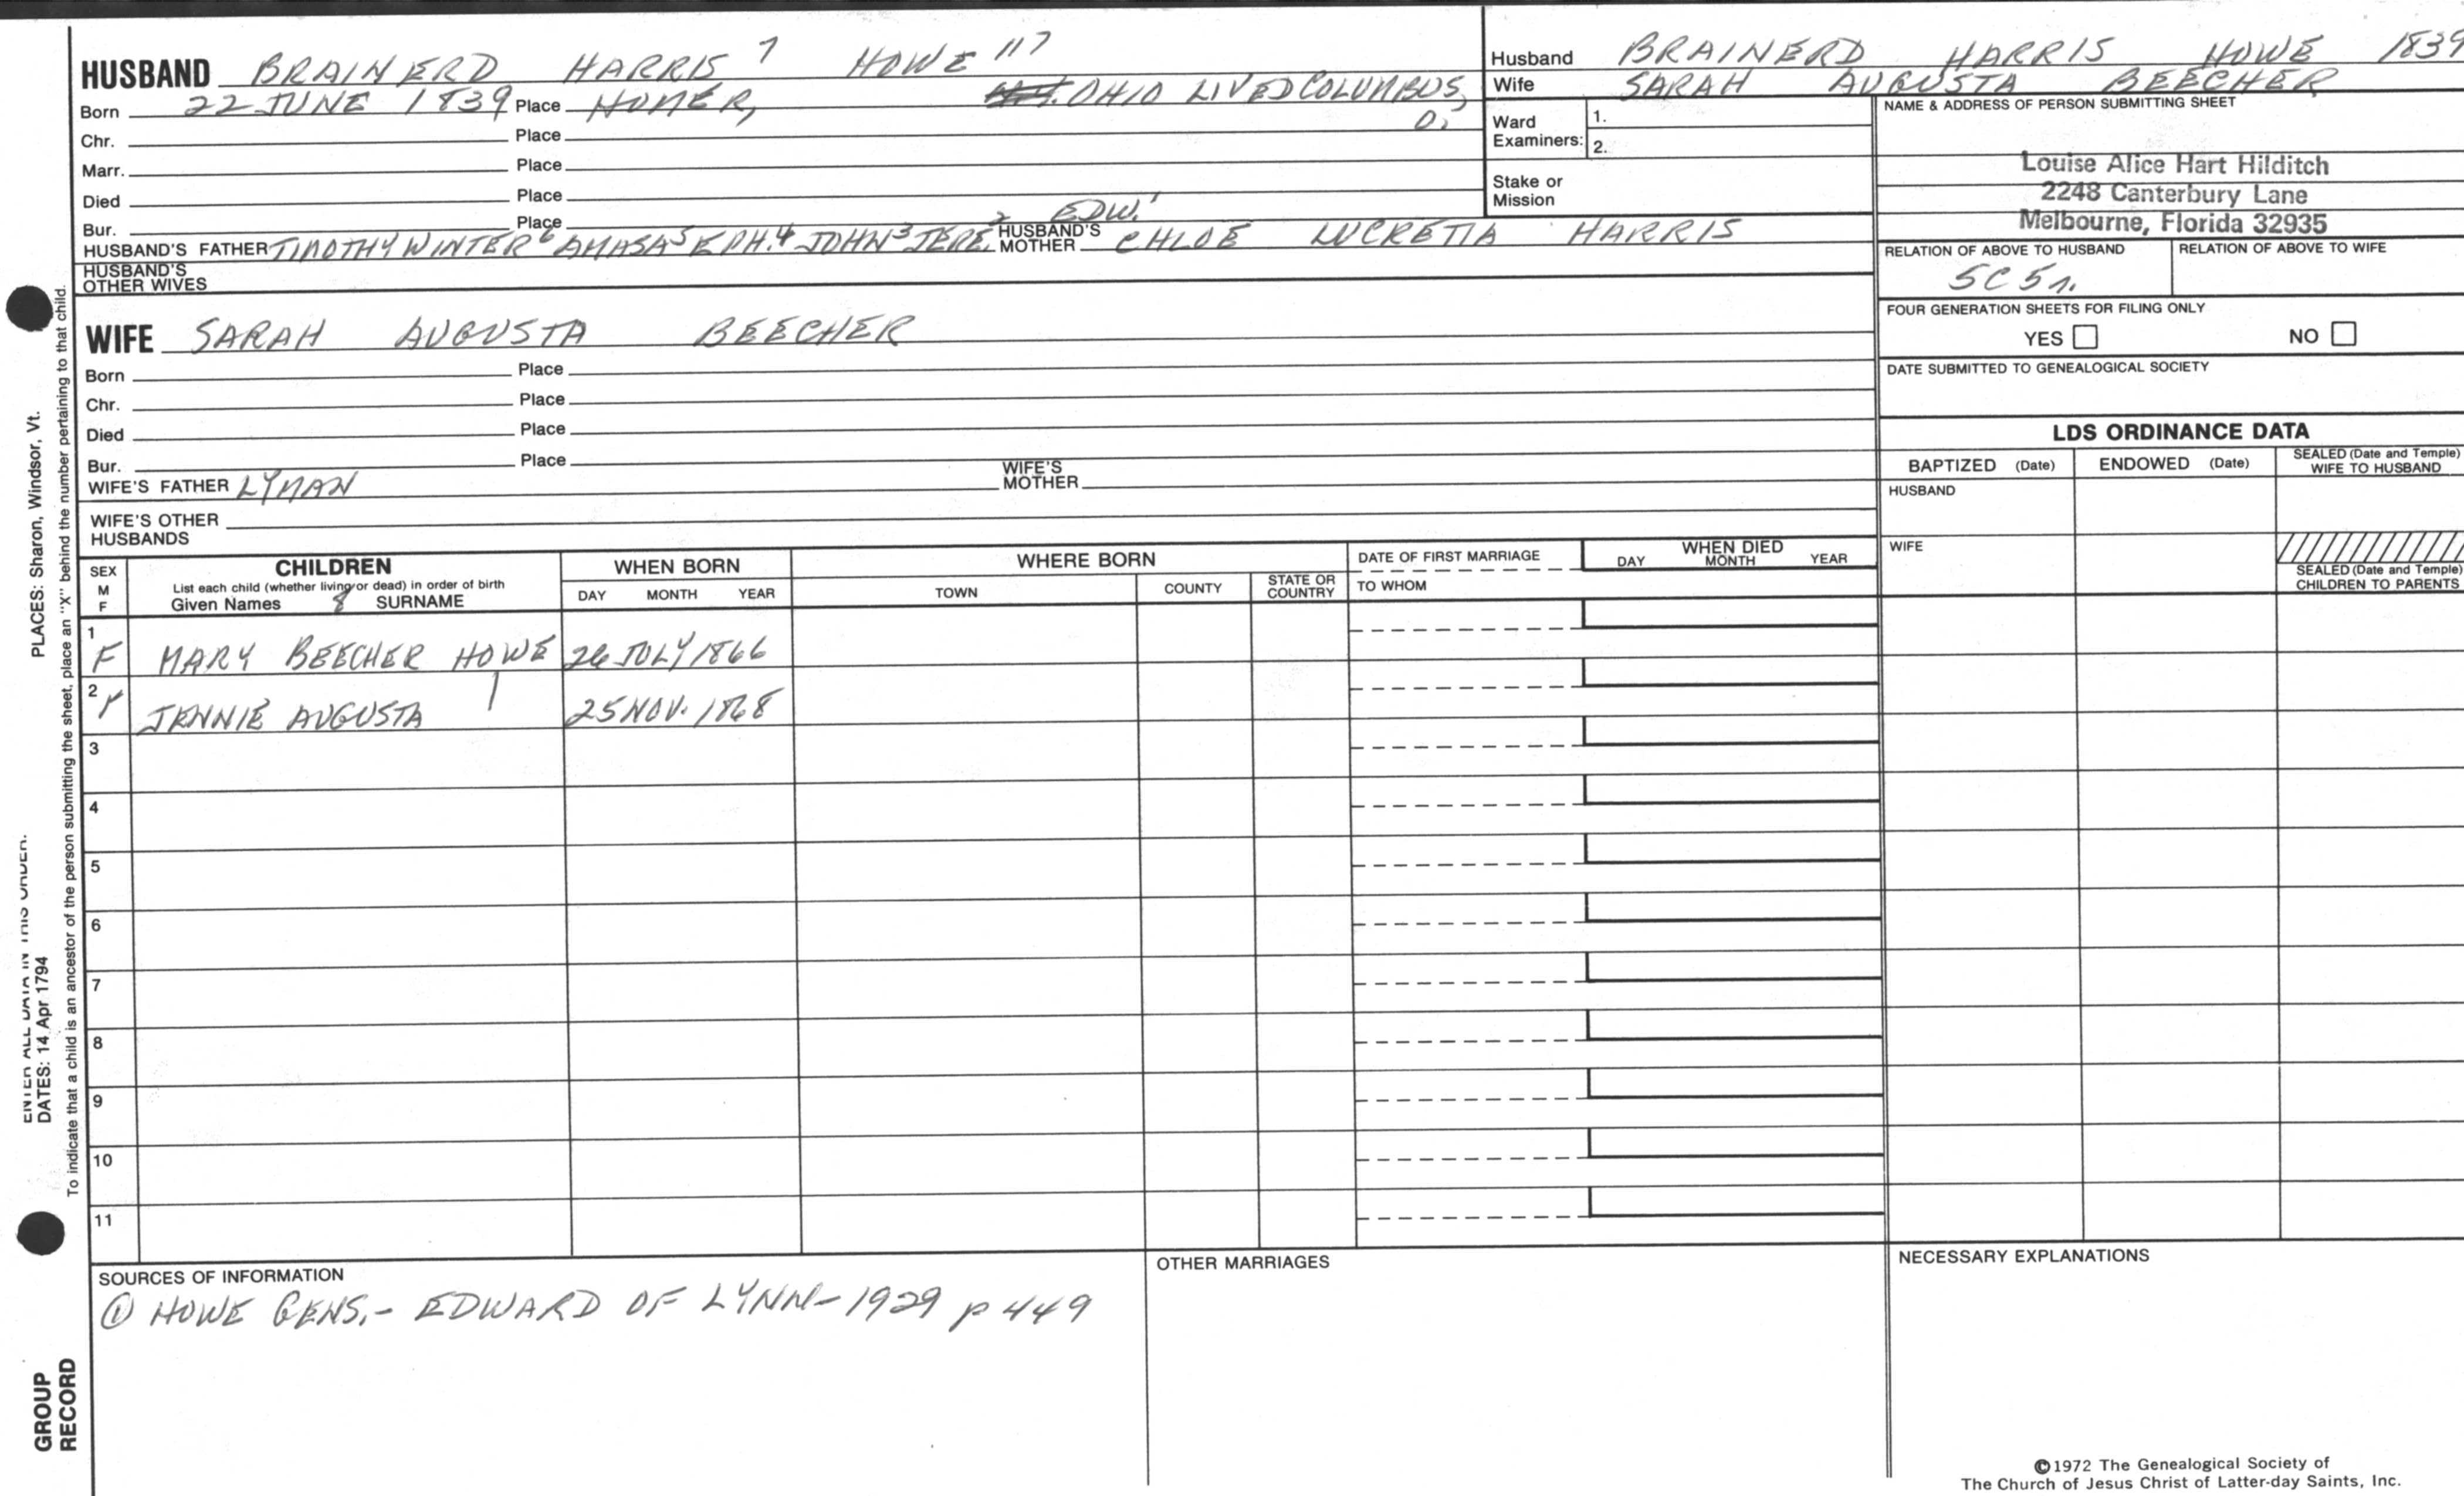 HUSBAND BRAINERD HARRIS 7 HOWE 117
Born 22 JUNE 1839 Place HOMER, OHIO LIVED COLUMBUS, O.
Chr. Place
Marr. Place
Died Place
Bur. Place
HUSBAND'S FATHER TIMOTHY WINTER 6 AMASA 5 EPH. 4 JOHN 3 JERE. 2 EDW. 1 HUSBAND'S MOTHER CHLOE LUCRETIA HARRIS
HUSBAND'S OTHER WIVES
WIFE SARAH AUGUSTA BEECHER
Born Place
Chr. Place
Died Place
Bur. Place
WIFE'S FATHER LYMAN WIFE'S MOTHER
WIFE'S OTHER HUSBANDS
Husband BRAINERD HARRIS HOWE 1839
Wife SARAH AUGUSTA BEECHER
Ward Examiners: 1.
2.
Stake or Mission
NAME & ADDRESS OF PERSON SUBMITTING SHEET
Louise Alice Hart Hilditch
2248 Canterbury Lane
Melbourne, Florida 32935
RELATION OF ABOVE TO HUSBAND RELATION OF ABOVE TO WIFE
5C 5r.
FOUR GENERATION SHEETS FOR FILING ONLY
YES NO
DATE SUBMITTED TO GENEALOGICAL SOCIETY
LDS ORDINANCE DATA
BAPTIZED (Date) ENDOWED (Date) SEALED (Date and Temple) WIFE TO HUSBAND
HUSBAND
WIFE
SEALED (Date and Temple) CHILDREN TO PARENTS
SEX M F
CHILDREN
List each child (whether living or dead) in order of birth
Given Names 8 SURNAME
WHEN BORN
DAY MONTH YEAR
WHERE BORN
TOWN COUNTY STATE OR COUNTRY
DATE OF FIRST MARRIAGE
TO WHOM
WHEN DIED
DAY MONTH YEAR
1 F MARY BEECHER HOWE 26 JULY 1866
2 F JENNIE AUGUSTA 25 NOV. 1868
3
4
5
6
7
8
9
10
11
SOURCES OF INFORMATION
① HOWE GENS.- EDWARD OF LYNN-1929 p 449
OTHER MARRIAGES
NECESSARY EXPLANATIONS
©1972 The Genealogical Society of
The Church of Jesus Christ of Latter-day Saints, Inc.
ENTER ALL DATA IN THIS ORDER:
DATES: 14 Apr 1794
PLACES: Sharon, Windsor, Vt.
To indicate that a child is an ancestor of the person submitting the sheet, place an "X" behind the number pertaining to that child.
GROUP
RECORD